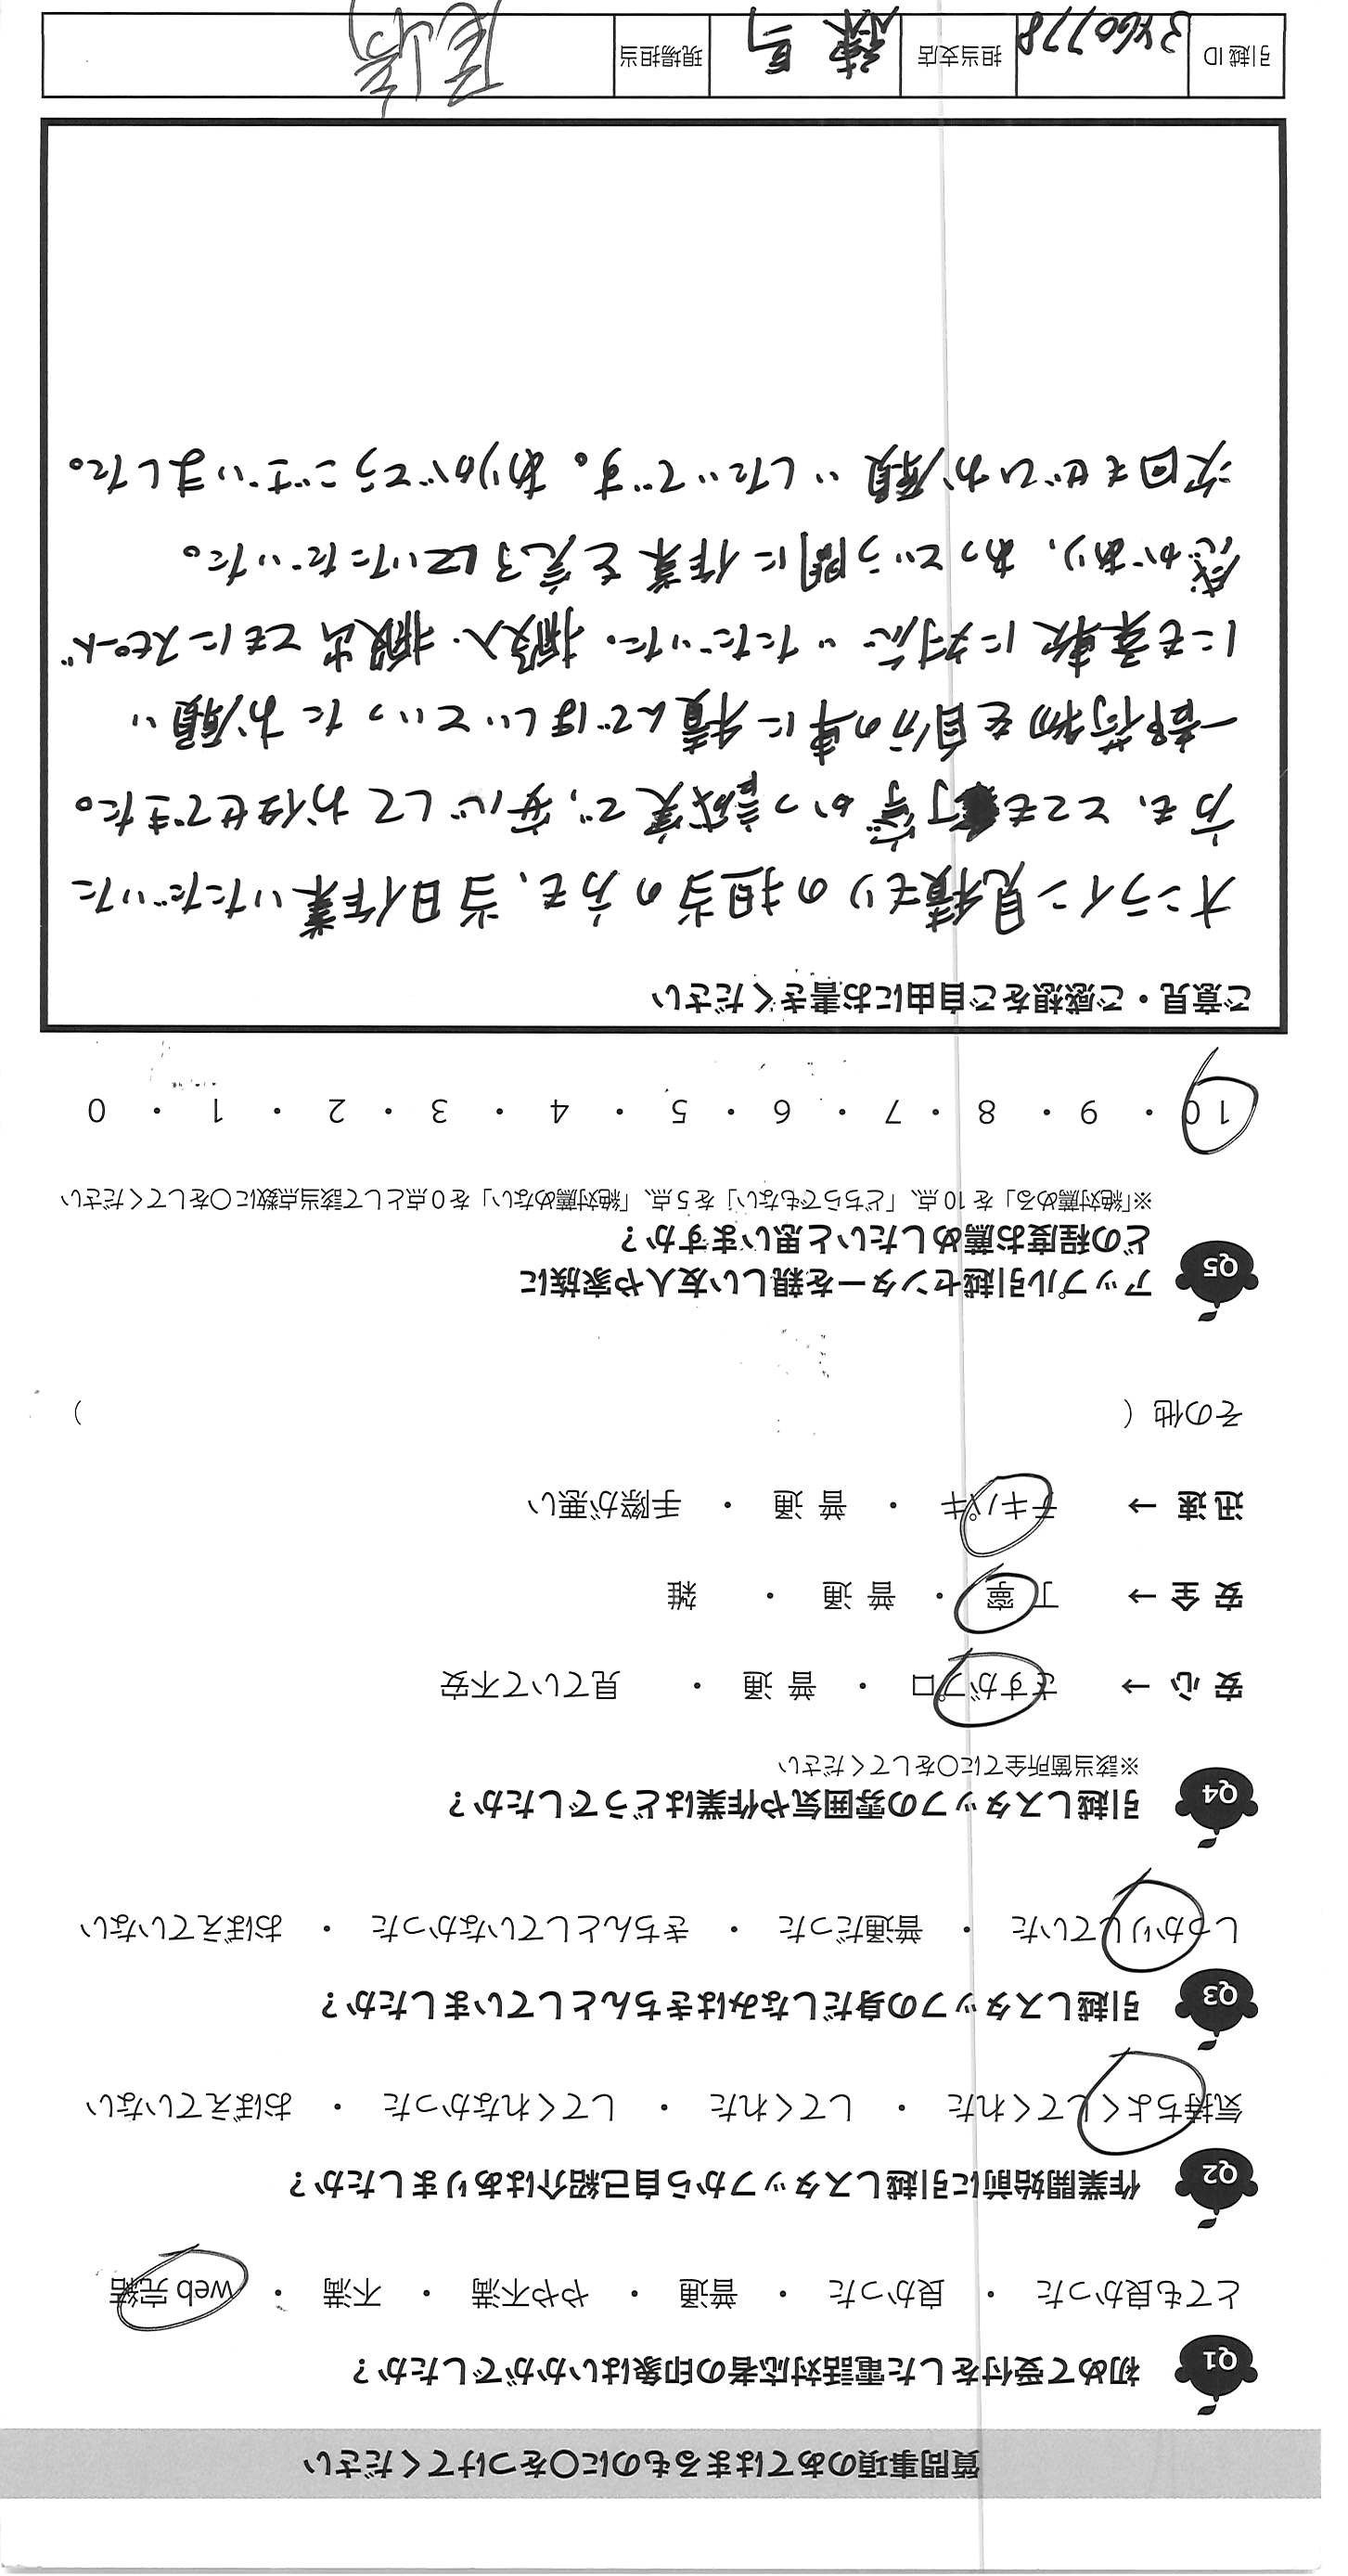 質問事項のあてはまるものに〇をつけてください
Q1 初めて受付をした電話対応者の印象はいかがでしたか？
とても良かった ・ 良かった ・ 普通 ・ やや不満 ・ 不満 ・ web 完結
Q2 作業開始前に引越しスタッフから自己紹介はありましたか？
気持ちよくしてくれた ・ してくれた ・ してくれなかった ・ おぼえていない
Q3 引越しスタッフの身だしなみはきちんとしていましたか？
しっかりしていた ・ 普通だった ・ きちんとしていなかった ・ おぼえていない
Q4 引越しスタッフの雰囲気や作業はどうでしたか？
※該当箇所全てに〇をしてください
安 心 → さすがプロ ・ 普 通 ・ 見ていて不安
安 全 → 丁 寧 ・ 普 通 ・ 雑
迅 速 → テキパキ ・ 普 通 ・ 手際が悪い
その他（ ）
Q5 アップル引越センターを親しい友人や家族に
どの程度お薦めしたいと思いますか？
※「絶対薦める」を 10 点、「どちらでもない」を 5 点、「絶対薦めない」を 0 点として該当点数に〇をしてください
10 ・ 9 ・ 8 ・ 7 ・ 6 ・ 5 ・ 4 ・ 3 ・ 2 ・ 1 ・ 0
ご意見・ご感想をご自由にお書きください
オンライン見積もりの担当の方も、当日作業いただいた
方も、とても丁寧かつ誠実で、安心してお任せできた。
一部荷物を自分の車に積んでほしいといったお願い
にも柔軟に対応いただいた。搬入・搬出ともにスピード
感があり、あっという間に作業を完了していただいた。
次回もぜひお願いしたいです。ありがとうございました。
引越 ID 3460778 担当支店 練馬 現場担当 尾崎